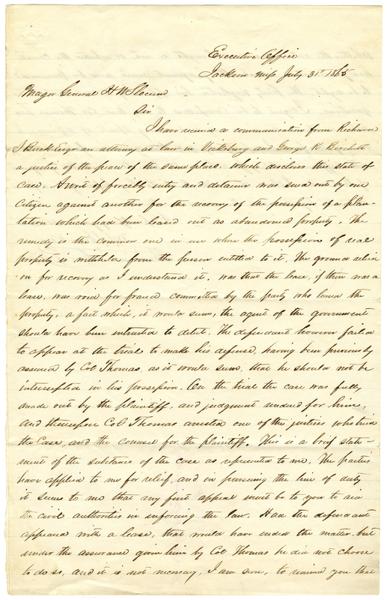 Executive Office
Jackson Miss July 31st 1865
Major General H W Slocum
Sir
I have received a communication from Richard
an attorney at law in Vicksburg and George R
a justice of the peace of the same place. which discloses this state of
case. A writ of forcibly entry and detainer was sued out by one
Citizen against another for the recovery of the possession of a plan-
tation which had been leased out as abandoned property. The
remedy is the common one in use where the possession of real
property is withheld from the person entitled to it. The ground relied
on for recovery as I understand it, was that the lease, if there was a
lease, was void for fraud committed by the party who leased the
property, a fact which, it would seem, the agent of the government
should have been instructed to detect. The defendant however failed
to appear at the trial to make his defense, having been previously
assured by Col Thomas, as it would seem, that he should not be
interrupted in his possession. On the trial the case was fully
made out by the plaintiff, and judgment rendered for him,
and thereupon Col Thomas arrested one of the justices who tried
the case, and the counsel for the plaintiff. This is a brief state-
ment of the substance of the case as represented to me. The parties
have applied to me for relief, and in pursuing the line of duty
it seems to me that my first appeal must be to you to aid
the civil authorities in enforcing the law. Had the defendant
appeared with a lease, that would have ended the matter, but
under the assurance given him by Col Thomas he did not choose
to do so, and it is not necessary, I am sure, to remind you that